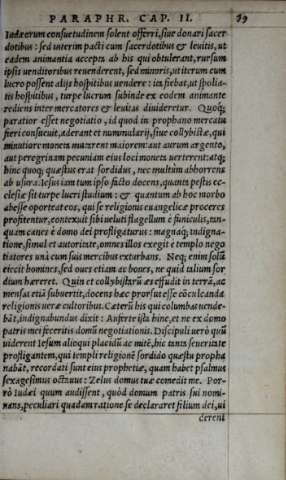 PARAPHR. CAP. II. 39
Iudæorum consuetudinem solent offerri, siue donari sacer
dotibus: sed interim pacti cum sacerdotibus & leuitis, ut
eadem animantia accepta ab his qui obtulerant, rursum
ipsis uenditoribus reuenderent, sed minoris, ut iterum cum
lucro possent alijs hospitibus uendere: ita fiebat, ut spolia-
tis hospitibus, turpe lucrum subinde ex eodem animante
rediens inter mercatores & leuitas diuideretur. Quoq;
paratior esset negotiatio, id quod in prophano mercatu
fieri consueuit, aderant et nummularij, siue collybistæ, qui
minutiore moneta mutarent maiorem: aut aurum argento,
aut peregrinam pecuniam eius loci moneta uerterent: atq;
hinc quoq; quæstus erat sordidus, nec multum abhorrens
ab usura. Iesus iam tum ipso facto docens, quanta pestis ec-
clesiæ sit turpe lucri studium: & quantum ab hoc morbo
abesse oporteat eos, qui se religionis euangelicæ proceres
profitentur, contexuit sibi ueluti flagellum è funiculis, tan-
quam canes è domo dei profligaturus: magnaq; indigna-
tione, simul et autoritate, omnes illos exegit e templo nego
tiatores unà cum suis mercibus exturbans. Neq; enim solũ
eiecit homines, sed oues etiam ac boues, ne quid talium sor
dium hæreret. Quin et collybistarũ æs effudit in terrã, ac
mensas etiã subuertit, docens hæc prorsus esse cōculcanda
religionis ueræ cultoribus. Cæterũ his qui columbas uende-
bãt, indignabundus dixit: Auferte ista hinc, et ne ex domo
patris mei feceritis domũ negotiationis. Discipuli uerò quũ
uiderent Iesum alioqui placidũ ac mitẽ, hic tanta seueritate
profligantem, qui templi religionẽ sordido quæstu propha
nabãt, recordati sunt eius prophetiæ, quam habet psalmus
sexagesimus octauus: Zelus domus tuæ comedit me. Por-
rò Iudæi quum audissent, quòd domum patris sui nomi-
nans, peculiari quadam ratione se declararet filium dei, ui
derent